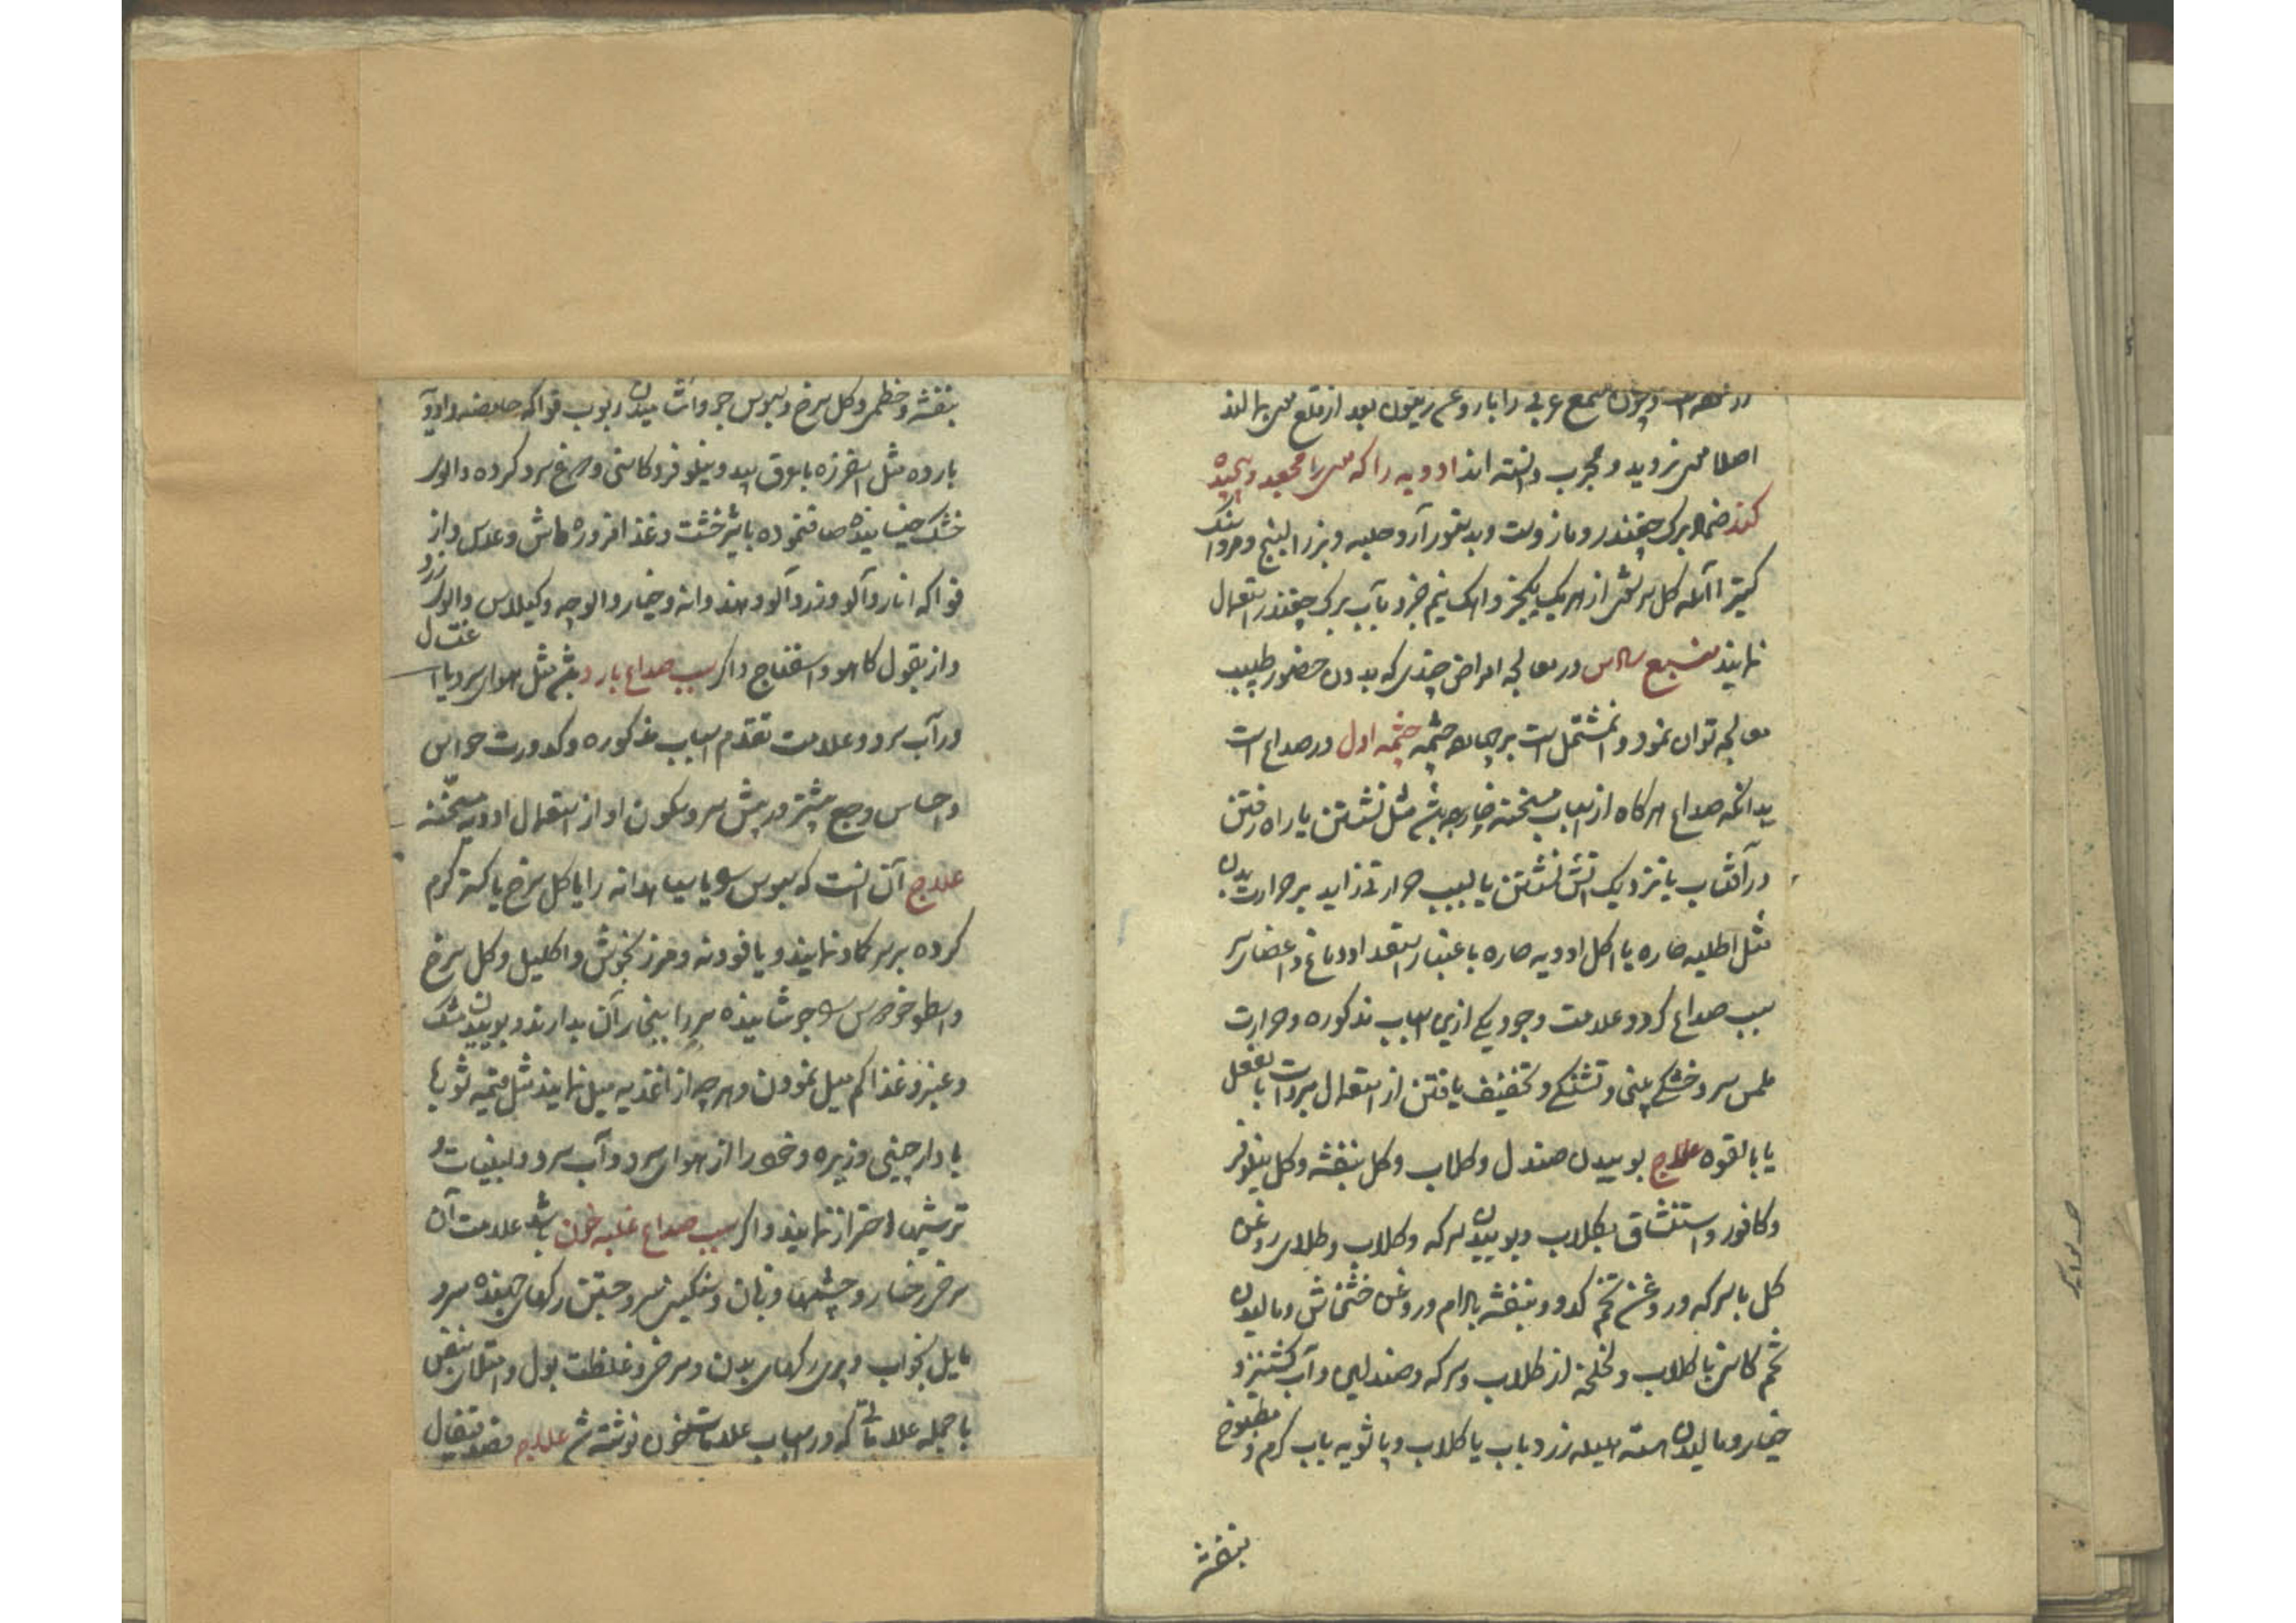 و چون صمغ عربی را با روغن زیتون بعد از قلع موی بمالند
اصلا موی نروید و مجرب دانسته اند ادویه را که موی را مجعد و پیچیده
کند ضماد برک چغندر و مازوست و بدستور آرد حلبه و بزر البنج و مرداسنک
کتیرا آمله کل سرشوی از هر یک یکجزو و اهک نیم جزو بآب برک چغندر استعمال
نمایند منبع سادس در معالجه امراض چندی که بدون حضور طبیب
معالجه توان نمود و آن مشتمل است بر چهل چشمه چشمه اول در صداع است
بدانکه صداع هرکاه از اسباب مسخنه خارجه باشد مثل نشستن یا راه رفتن
در آفتاب یا نزدیک آتش نشستن یا بسبب حرارتی زاید بر حرارت بدن
مثل اطلیه حاره یا اکل ادویه حاره باعتبار استعداد دماغ و اعضای سر
سبب صداع کردد و علامت وجود یکی ازین اسباب مذکوره و حرارت
ملمس سر و خشکی بینی و تشنکی و تخفیف یافتن از استعمال مبردات بالفعل
یا بالقوه علاج بوییدن صندل و کلاب و کل بنفشه و کل نیلوفر
و کافور و استنشاق بکلاب و بوییدن سرکه و کلاب و طلای روغن
کل با سرکه و روغن تخم کدو و بنفشه بادام و روغن خشخاش و مالیدن
تخم کاسنی با کلاب و لخلخه از کلاب و سرکه و صندلین و آب کشنیز و
خیار و مالیدن هسته هلیله زرد باب یا کلاب و پاشویه باب کرم و مطبوخ
بنفشه
بنفشه و خطمی و کل سرخ و سبوس جو و اشامیدن ربوب فواکه حامضه و ادویه
بارده مثل اسفرزه با عرق بید و نیلوفر و کاسنی و مرغ سرد کرده و آلوی
خشک خیسانیده صاف نموده با شیرخشت و غذا مزوره ماش و عدس و از
فواکه انار و آلو و زردآلو و هندوانه و خیار و الوچه و کیلاس و الوی زرد
و از بقول کاهو و اسفناج و اکر سبب صداع بارد باشد مثل هوای سرد یا اغتسال
در آب سرد و علامت تقدم اسباب مذکوره و کدورت حواس
و احساس وجع بیشتر در پیش سر و سکون او از استعمال ادویه مسخنه
علاج آن انست که سبوس و یا سیاهدانه را یا کل سرخ یا کهنه کرم
کرده بر سر کماد نمایند و یا فودنه و مرزنجوش و اکلیل و کل سرخ
و اسطوخودوس جوشانیده سر را ببخار آن بدارند و بوییدن مشک
و عنبر و غذا کم میل نمودن و هر چه از اغذیه میل نمایند مثل قیمه شوربا
با دارچینی و زیره و خود را از هوای سرد و آب سرد و لبنیات و
ترشیها احتراز نمایند و اکر سبب صداع غلبه خون باشد علامت آن
سرخی رخسار و چشمها و زبان و سنکینی سر و جستن رکهای جهنده سر و
مایل بخواب و پری رکهای بدن و سرخی و غلظت بول و امتلای نبض
با جمله علاماتی که در اسباب علامات خون نوشته شد علاج فصد قیفال